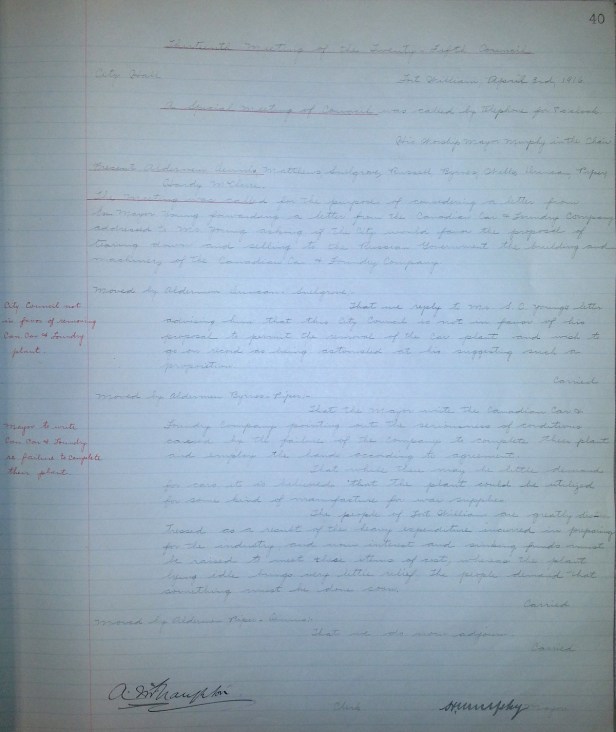 40
Thirteenth Meeting of the Twenty-Fifth Council
City Hall Fort William April 3rd, 1916
A Special Meeting of Council was called by telephone for
His Worship Mayor Murphy in the Chair
Present: Aldermen Dennis, Matthews, Russell, Byrnes, Wells, Piper,
The meeting was called for the purpose of considering a letter from
Ex Mayor Young forwarding a letter from the Canadian Car & Foundry Company
addressed to Mr. Young asking if the City would favor the proposal of
tearing down and selling to the Russian Government the building and
machinery of the Canadian Car & Foundry Company
Moved by Alderman
City Council not
in favor of removing
Can Car & Foundry
plant.
That we reply to Mr. S.C. Young's letter
advising him that this City Council is not in favor of his
proposal to permit the removal of the Car plant and wish to
go on record as being astonished at his suggesting such a
proposition.
Carried
Moved by Aldermen Byrnes - Piper
Mayor to write
Can Car & Foundry
re failure to complete
their plant
That the Mayor write the Canadian Car &
Foundry Company pointing out the seriousness of conditions
caused by the failure of the Company to complete their plant
and employ the hands according to agreement
That while there may be little demand
for cars it is believed that the plant could be utilized
for some kind of manufacture for war supplies
The people of Fort William are greatly dis-
tressed as a result of the heavy expenditure incurred in preparing
for the industry and now interest and sinking funds must
be raised to meet these items of cost, whereas the plant
lying idle brings very little relief, the people demand that
something must be done soon
Carried
Moved by Aldermen Piper - Dennis
That we do now adjourn
Carried
A. McNaughton Clerk H. Murphy Mayor